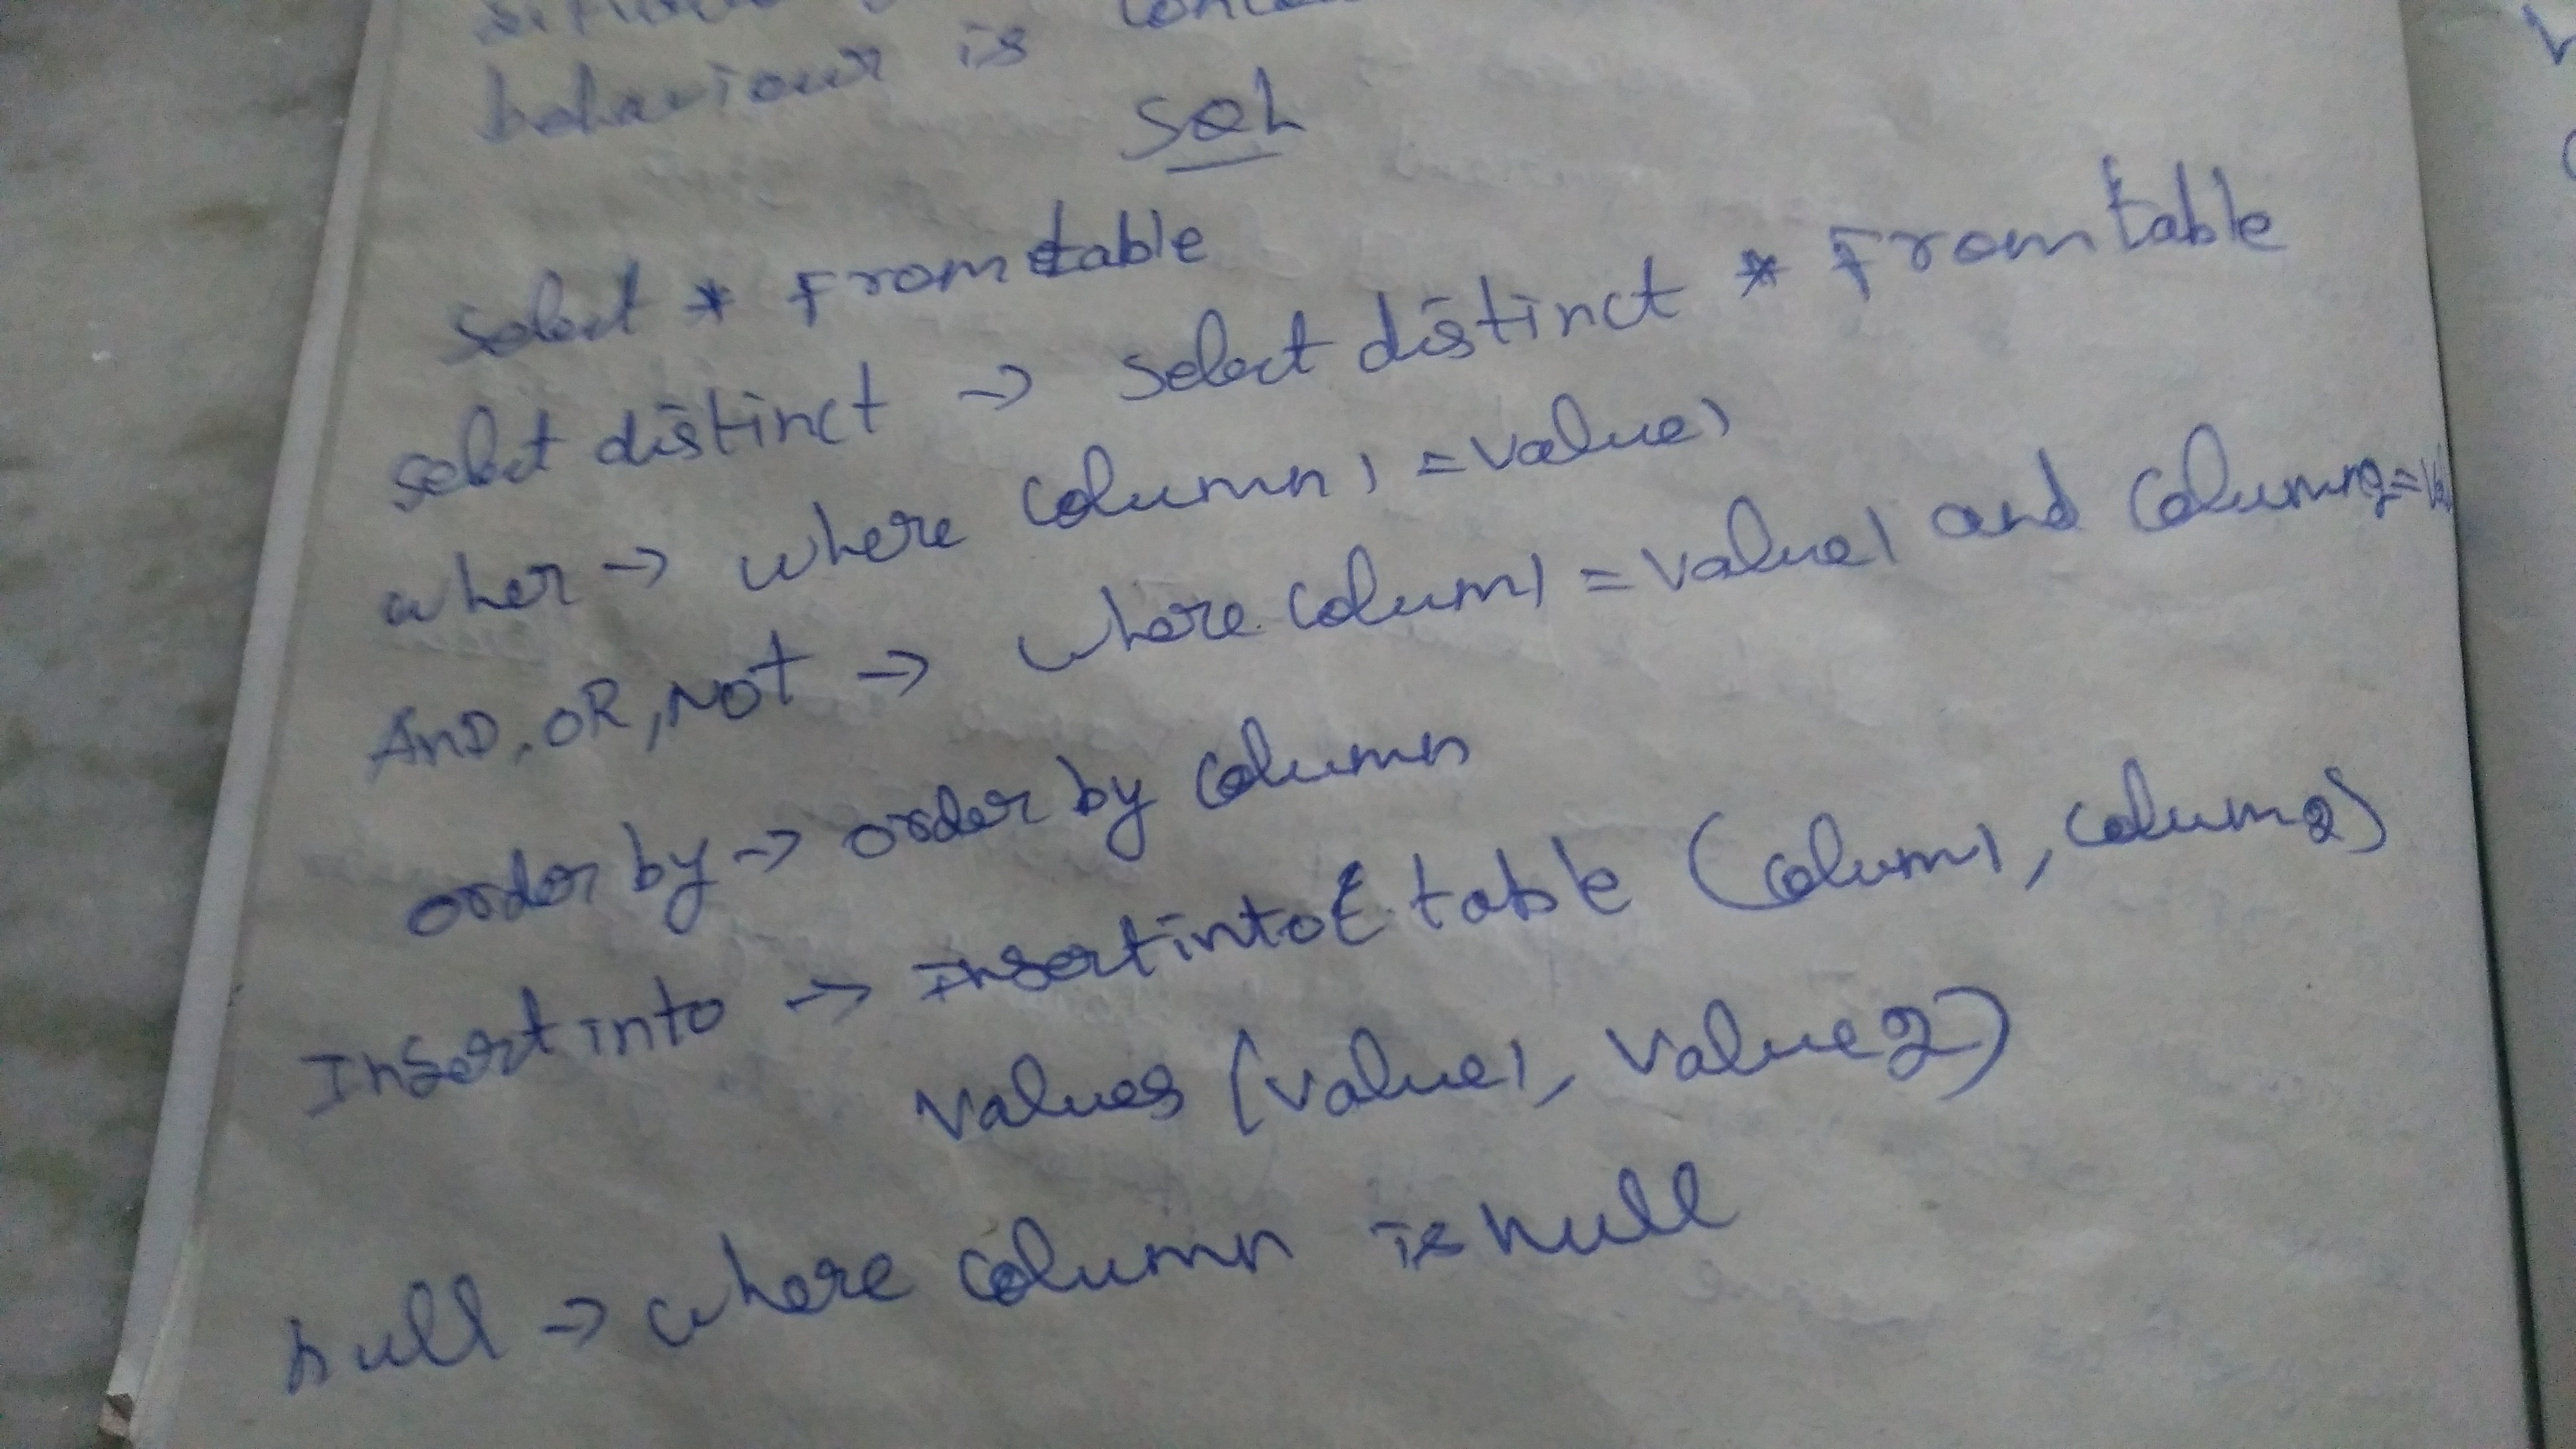 behaviour is
SQL
Select * From table
Select distinct → Select distinct * From table
wher → where column1 = value1
AND, OR, NOT → where colum1 = value1 and column2 =
order by → order by column
Insert into → Insert into table (colum1, colum2)
values (value1, value2)
null → where column is null